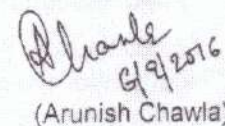 AChawla
6/9/2016
(Arunish Chawla)